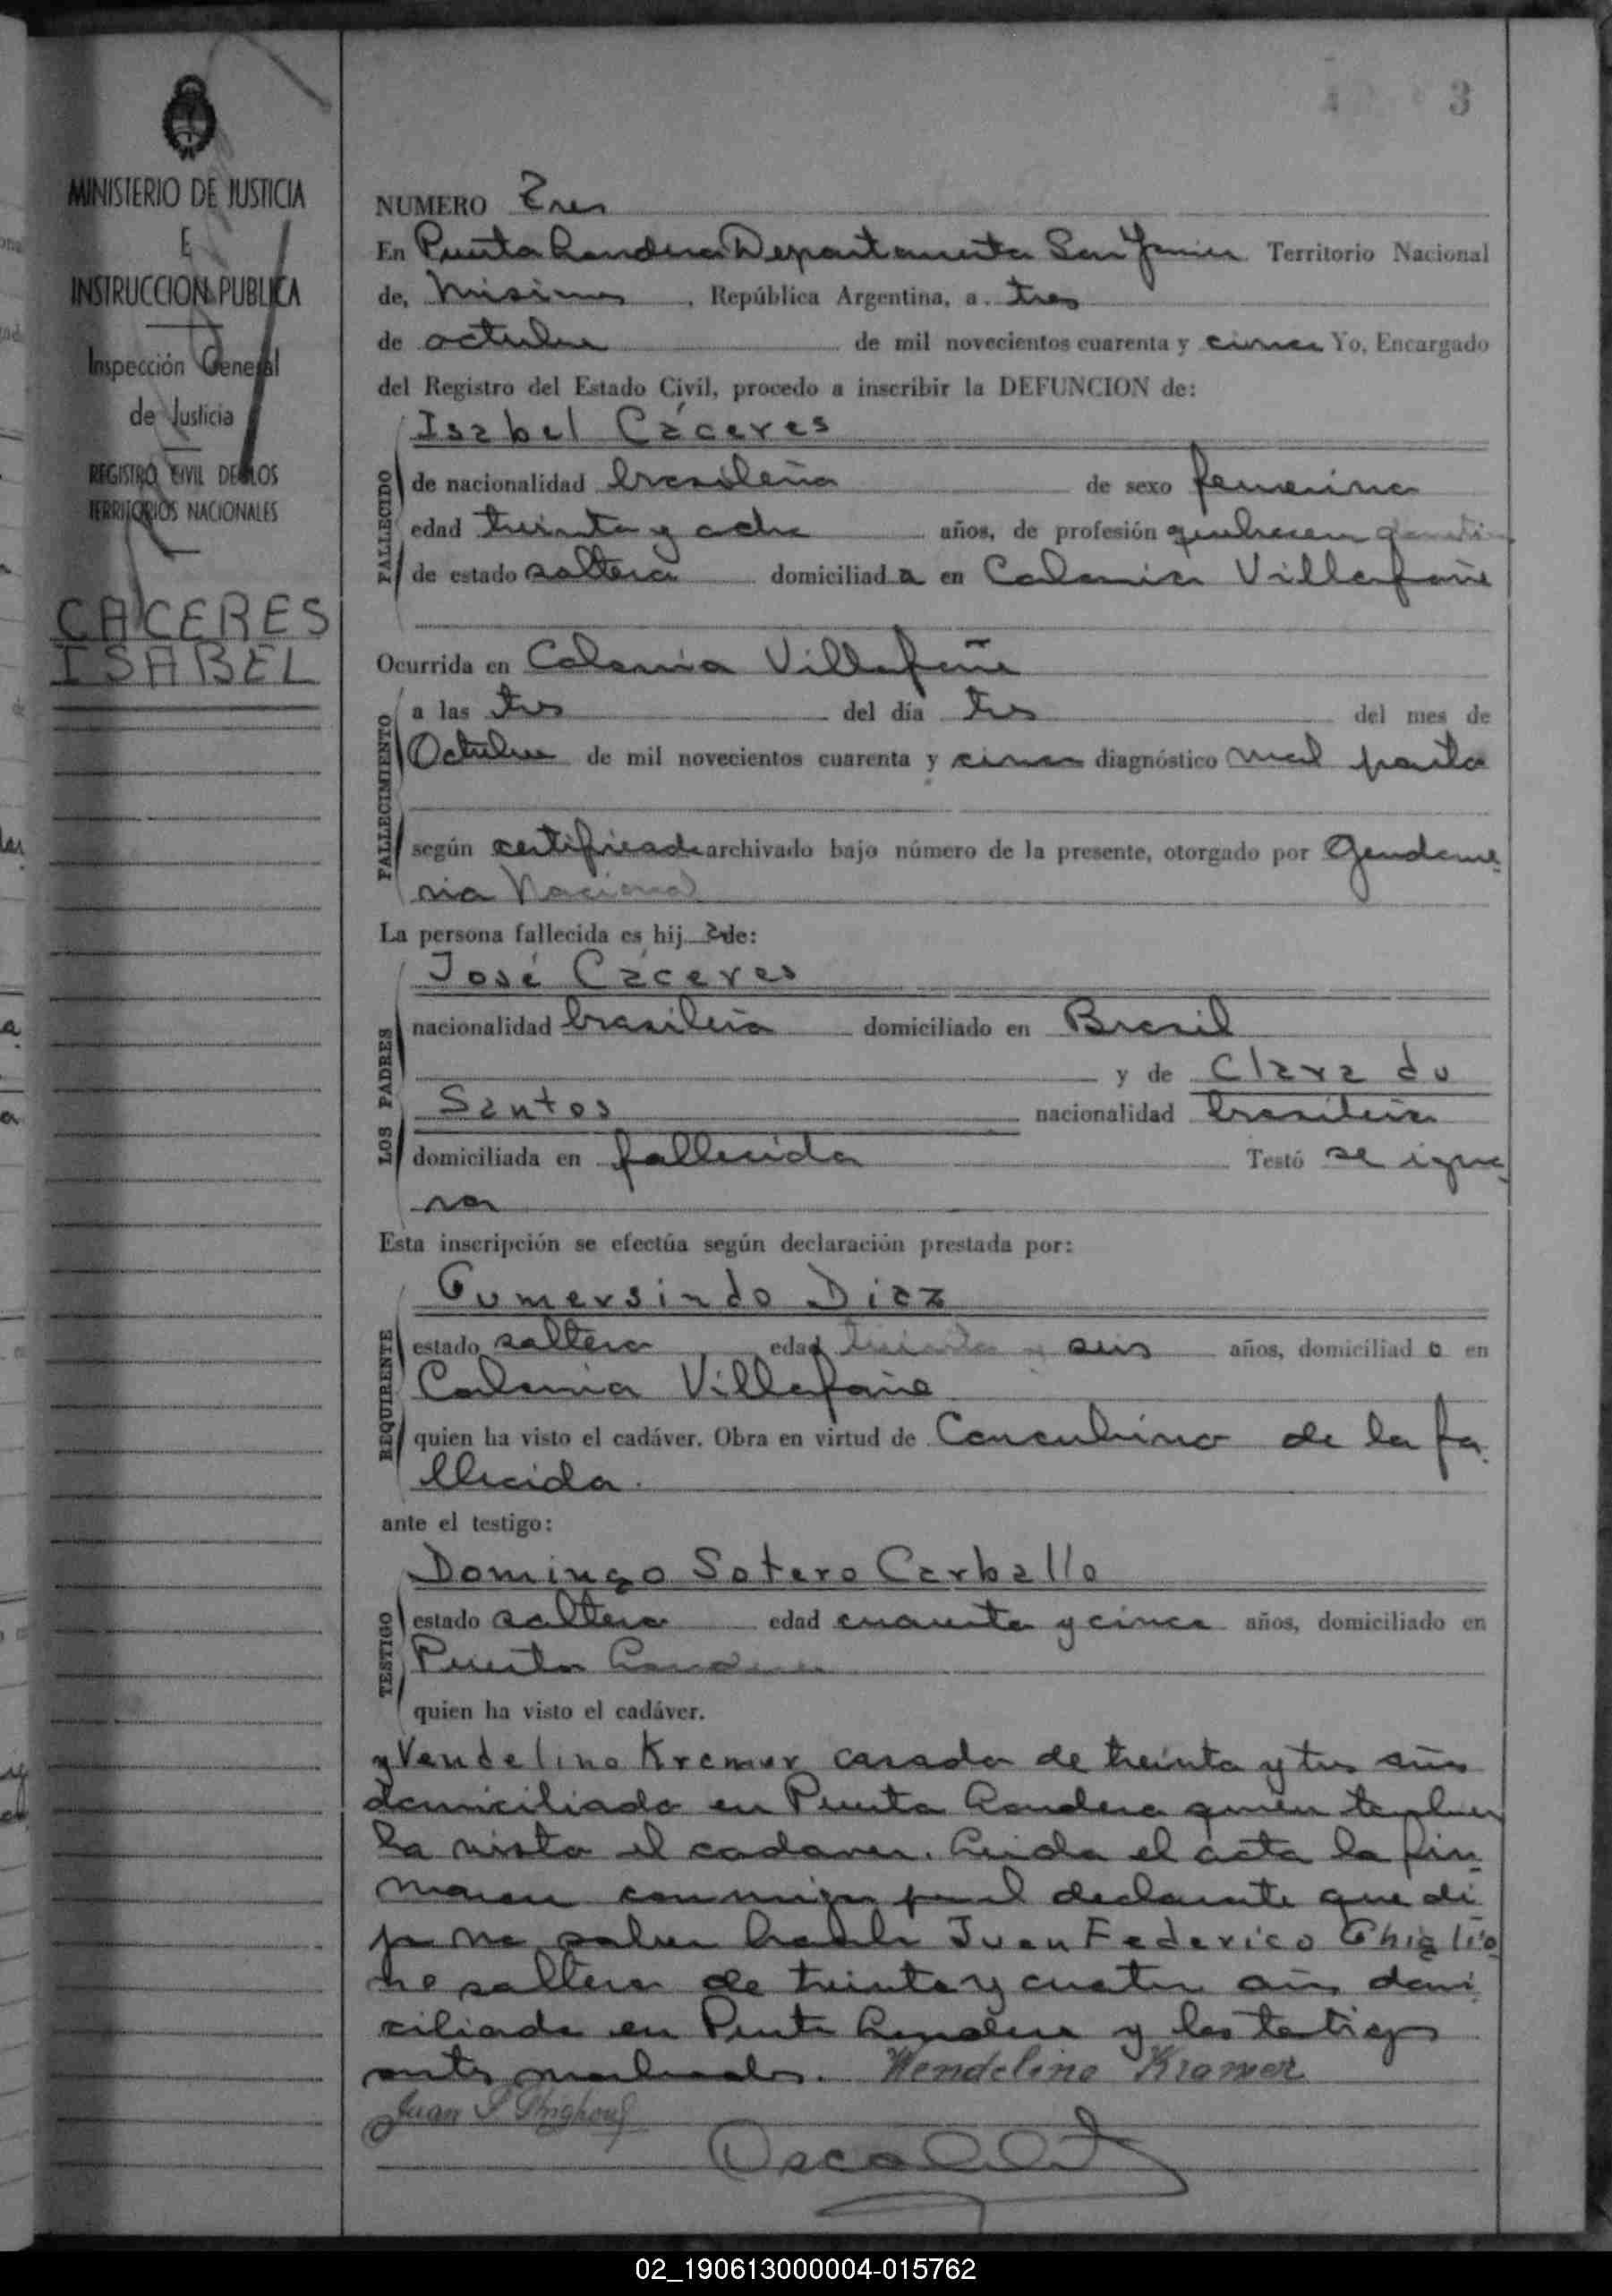 3
MINISTERIO DE JUSTICIA
E
INSTRUCCION PUBLICA
Inspección General
de Justicia
REGISTRO CIVIL DE LOS
TERRITORIOS NACIONALES
CACERES
ISABEL
NUMERO Tres
En Puerto Londero Departamento San Javier Territorio Nacional
de, Misiones, República Argentina, a tres
de octubre de mil novecientos cuarenta y cinco Yo, Encargado
del Registro del Estado Civil, procedo a inscribir la DEFUNCION de:
Isabel Cáceres
FALLECIDO
de nacionalidad brasileña de sexo femenino
edad treinta y ocho años, de profesión quehacer
de estado soltera domiciliad a en Colonia Villafañe
Ocurrida en Colonia Villafañe
FALLECIMIENTO
a las tres del día tres del mes de
Octubre de mil novecientos cuarenta y cinco diagnóstico mal parto
según certificado archivado bajo número de la presente, otorgado por Gendarme-
ria Nacional
La persona fallecida es hij a de:
LOS PADRES
José Cáceres
nacionalidad brasileña domiciliado en Brasil
y de Clara do
Santos nacionalidad brasileña
domiciliada en fallecida Testó se igno-
ra
Esta inscripción se efectúa según declaración prestada por:
REQUIRENTE
Gumersindo Diaz
estado soltero edad treinta y seis años, domiciliad o en
Colonia Villafañe
quien ha visto el cadáver. Obra en virtud de Concubino de la fa-
llecida.
ante el testigo:
TESTIGO
Domingo Sotero Carballo
estado soltero edad cuarenta y cinco años, domiciliado en
Puerto
quien ha visto el cadáver.
y Vendelino Kremer casado de treinta y tres años
domiciliado en Puerto quien tambien
ha visto el cadaver. Leida el acta la fir-
maron conmigo por el declarante que di-
jo no saber hacerlo Juan Federico Ghiglio-
ne soltero de treinta y cuatro años domi-
ciliado en Puerto y los testigos
antes nombrados. Wendelino Kramer
Juan F Ghiglione
02_190613000004-015762